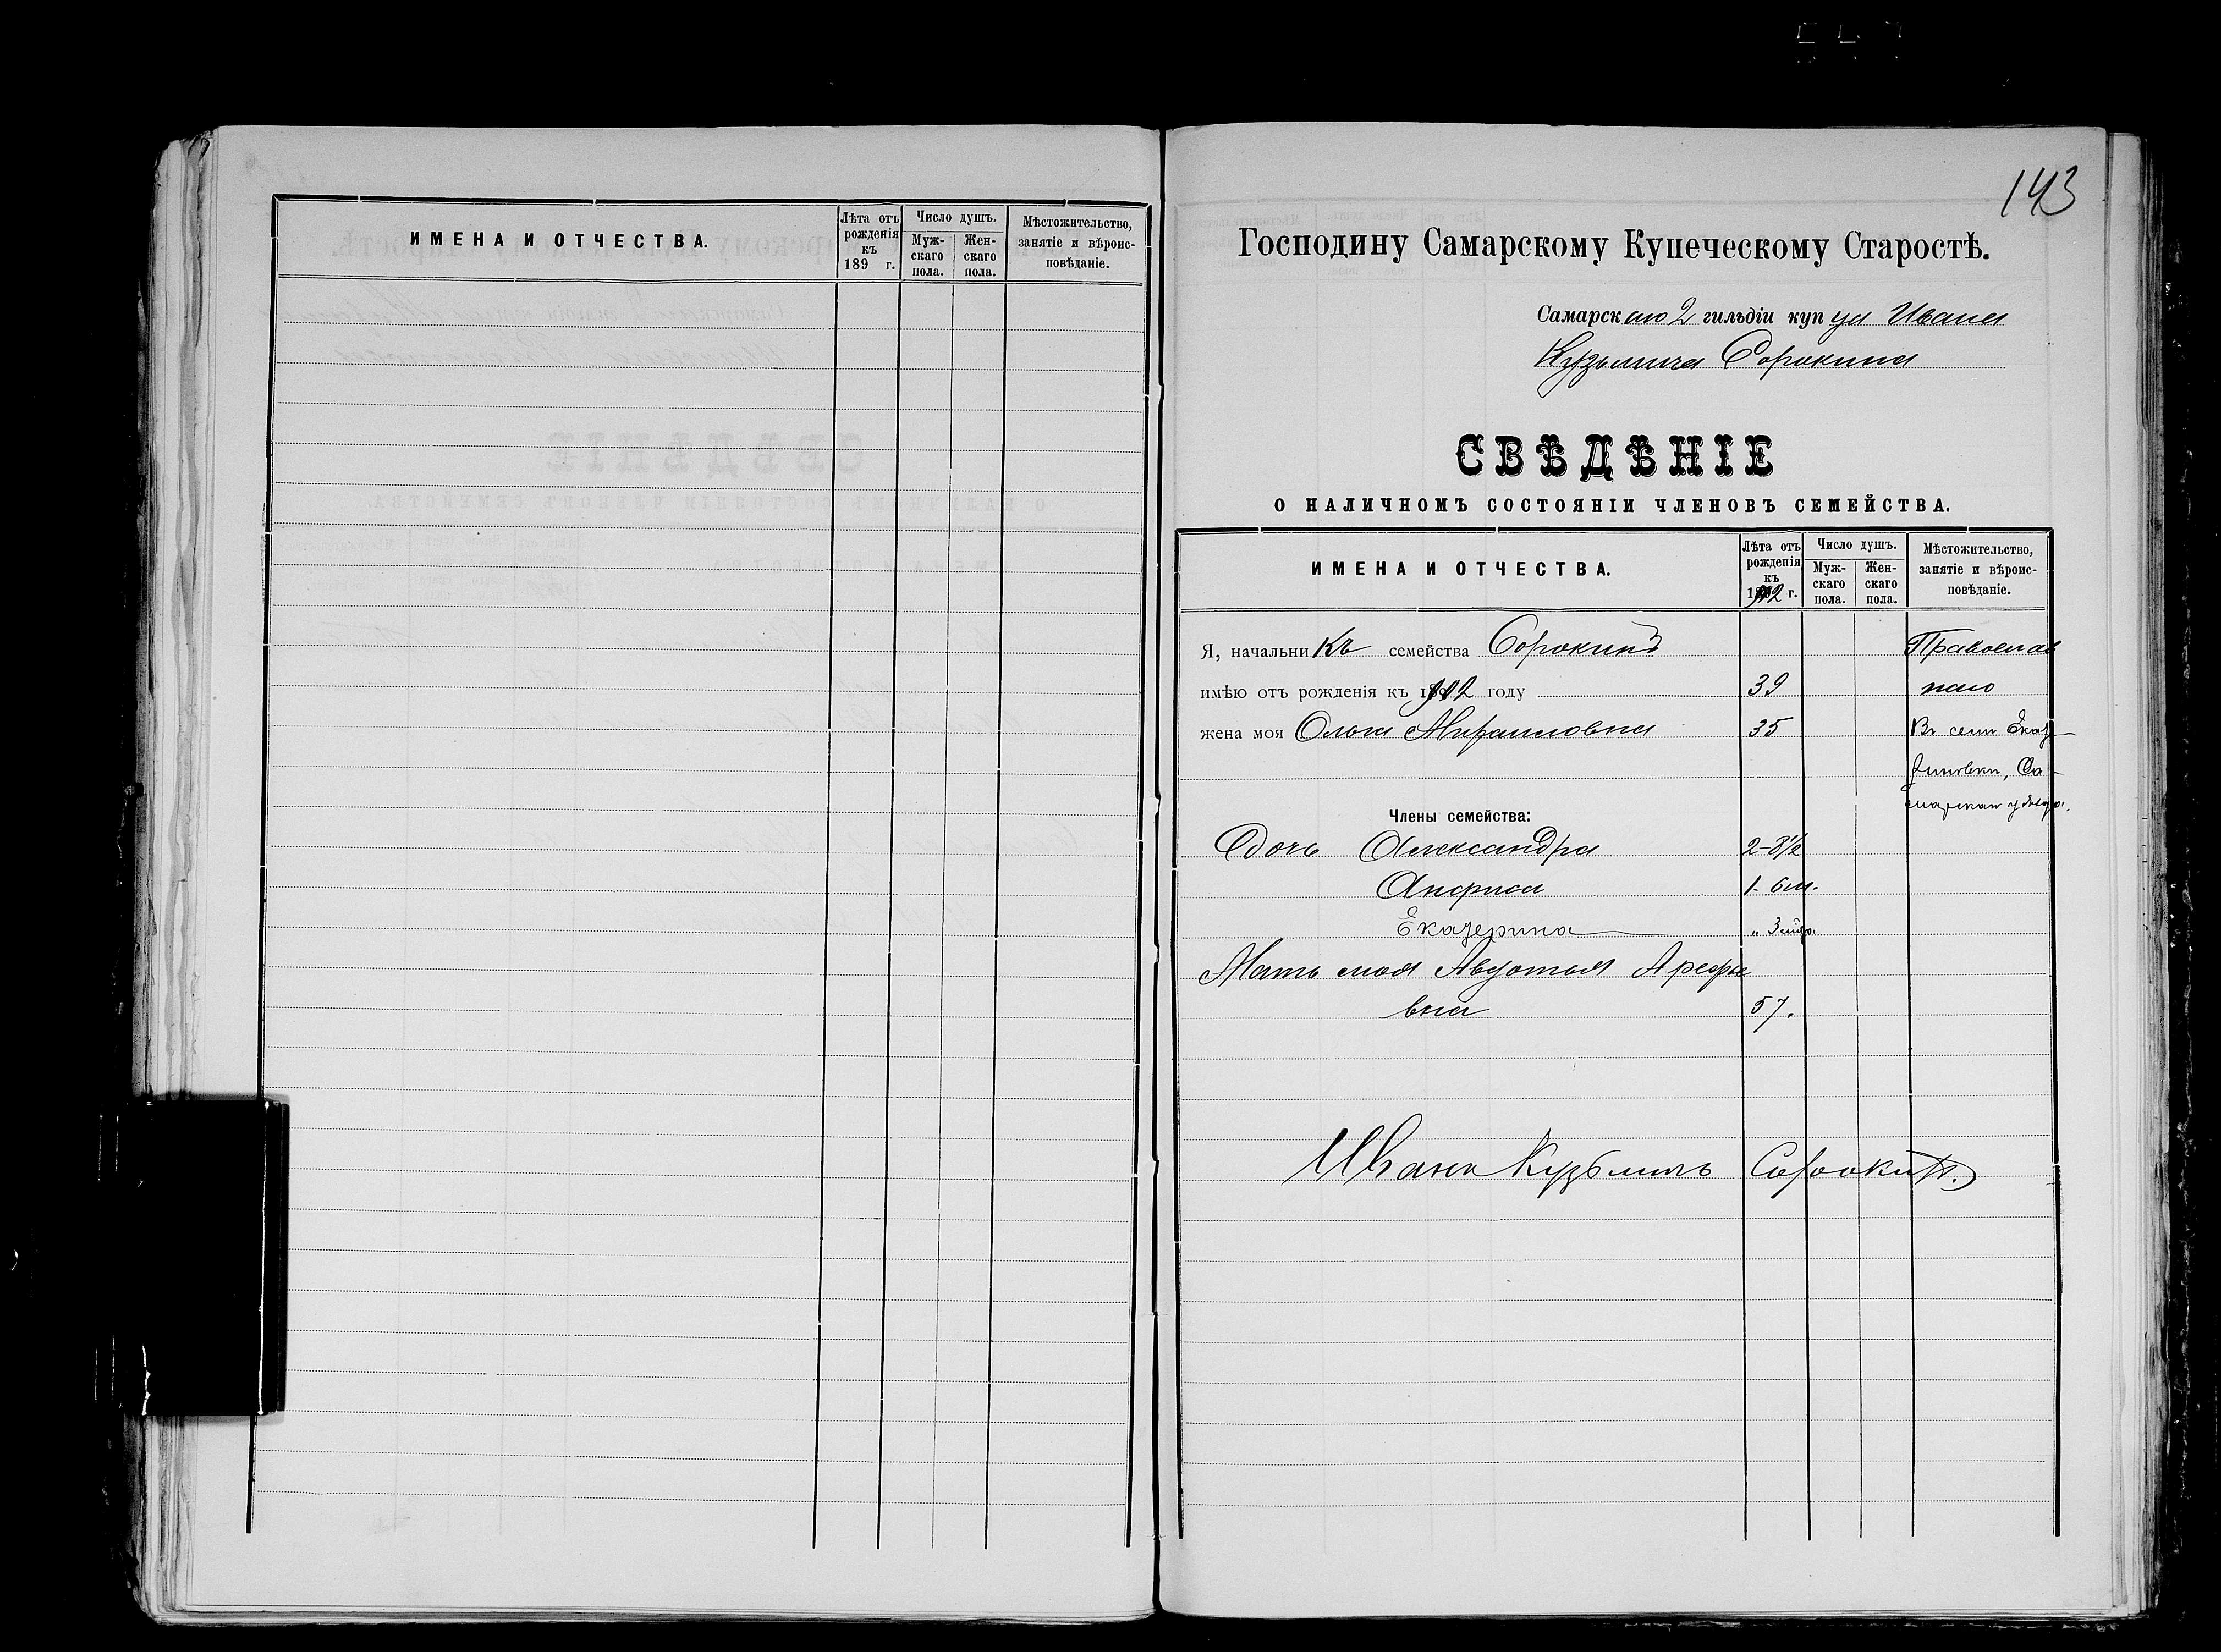 ИМЕНА И ОТЧЕСТВА.
Лѣта отъ рожденія къ 189 г.
Число душъ.
Мужскаго пола.
Женскаго пола.
Мѣстожительство, занятіе и вѣроисповѣданіе.
143
Господину Самарскому Купеческому Старостѣ.
Самарскаго 2 гильдіи купца Ивана
Кузьмича Сорокина
СВѢДѢНІЕ
О НАЛИЧНОМЪ СОСТОЯНІИ ЧЛЕНОВЪ СЕМЕЙСТВА.
ИМЕНА И ОТЧЕСТВА.
Лѣта отъ рожденія къ 1902 г.
Число душъ.
Мужскаго пола.
Женскаго пола.
Мѣстожительство, занятіе и вѣроисповѣданіе.
Я, начальникъ семейства Сорокинъ Православ
имѣю отъ рожденія къ 1902 году 39 наго
жена моя Ольга 35 Въ селѣ Екате
риновки, Са
марскаго уѣзда.
Члены семейства:
Дочь Александра 2-8½
Анфиса 1-6 м.
Екатерина " 3
Мать моя Авдотья Арефье
вна 57.
Иванъ Кузьмичъ Сорокинъ.